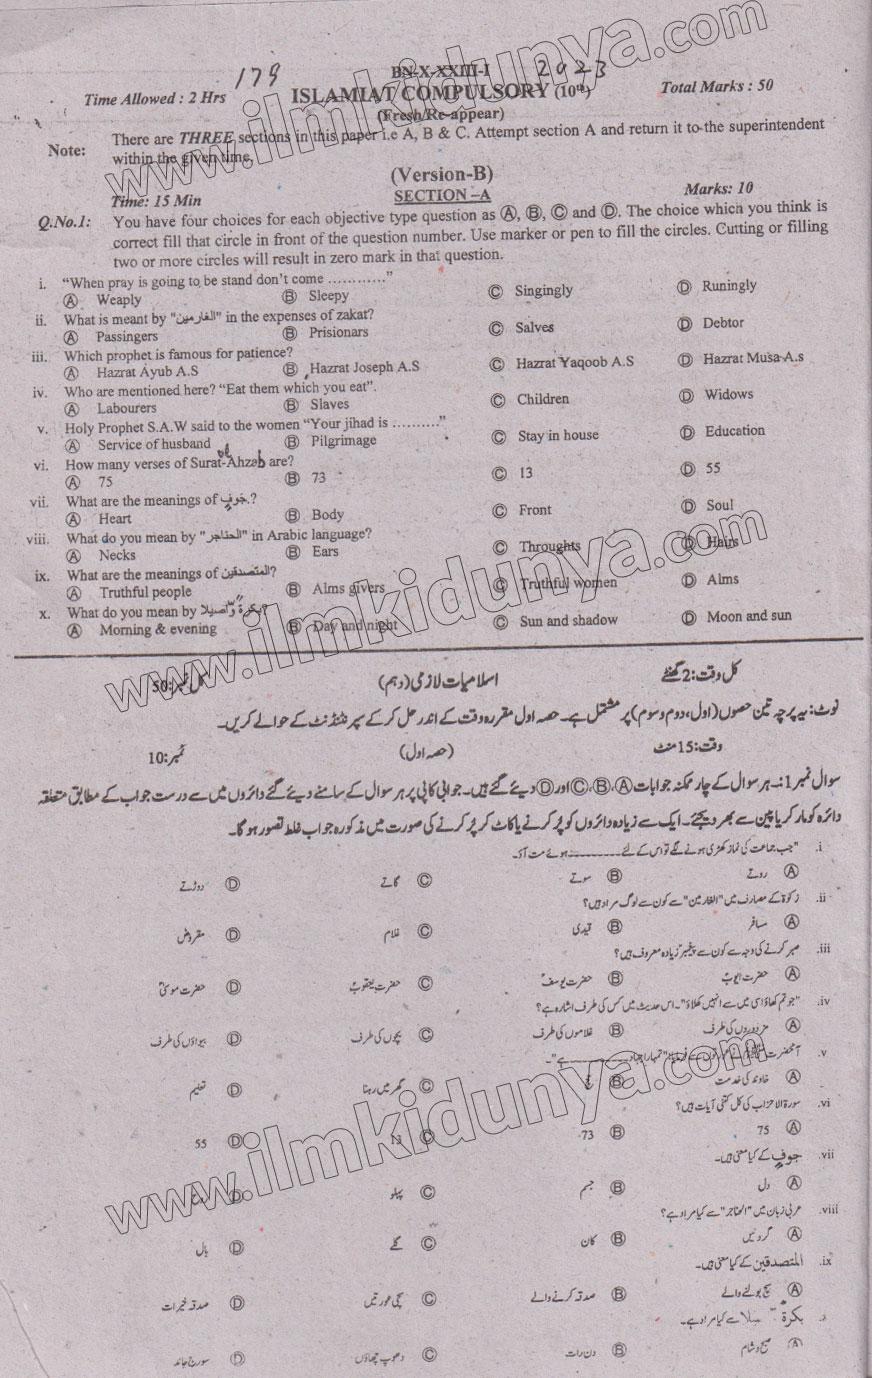 179
BN-X-XXIII-I 2023
Time Allowed : 2 Hrs ISLAMIAT COMPULSORY (10th) Total Marks : 50
(Fresh/Re-appear)
Note: There are THREE sections in this paper i.e A, B & C. Attempt section A and return it to the superintendent
within the given time.
(Version-B)
Time: 15 Min SECTION –A Marks: 10
Q.No.1: You have four choices for each objective type question as Ⓐ, Ⓑ, Ⓒ and Ⓓ. The choice which you think is
correct fill that circle in front of the question number. Use marker or pen to fill the circles. Cutting or filling
two or more circles will result in zero mark in that question.
i. “When pray is going to be stand don’t come ............”
Ⓐ Weaply Ⓑ Sleepy Ⓒ Singingly Ⓓ Runingly
ii. What is meant by "الغارمین" in the expenses of zakat?
Ⓐ Passingers Ⓑ Prisionars Ⓒ Salves Ⓓ Debtor
iii. Which prophet is famous for patience?
Ⓐ Hazrat Ayub A.S Ⓑ Hazrat Joseph A.S Ⓒ Hazrat Yaqoob A.S Ⓓ Hazrat Musa A.s
iv. Who are mentioned here? “Eat them which you eat”.
Ⓐ Labourers Ⓑ Slaves Ⓒ Children Ⓓ Widows
v. Holy Prophet S.A.W said to the women “Your jihad is .........”
Ⓐ Service of husband Ⓑ Pilgrimage Ⓒ Stay in house Ⓓ Education
vi. How many verses of Surat-Ahzab are?
Ⓐ 75 Ⓑ 73 Ⓒ 13 Ⓓ 55
vii. What are the meanings of جوفٍ.?
Ⓐ Heart Ⓑ Body Ⓒ Front Ⓓ Soul
viii. What do you mean by "الحناجر" in Arabic language?
Ⓐ Necks Ⓑ Ears Ⓒ Throughts Ⓓ Hairs
ix. What are the meanings of المتصدقین?
Ⓐ Truthful people Ⓑ Alms givers Ⓒ Truthful women Ⓓ Alms
x. What do you mean by بکرۃ وّ اصیلا?
Ⓐ Morning & evening Ⓑ Day and night Ⓒ Sun and shadow Ⓓ Moon and sun
کل وقت: 2 گھنٹے اسلامیات لازمی (دہم) کل نمبر: 50
نوٹ: یہ پرچہ تین حصوں (اول، دوم و سوم) پر مشتمل ہے۔ حصہ اول مقررہ وقت کے اندر حل کر کے سپرنٹنڈنٹ کے حوالے کریں۔
وقت: 15 منٹ (حصہ اول) نمبر: 10
سوال نمبر 1:۔ ہر سوال کے چار ممکنہ جوابات Ⓐ، Ⓑ، Ⓒ اور Ⓓ دیئے گئے ہیں۔ جوابی کاپی پر ہر سوال کے سامنے دیئے گئے دائروں میں سے درست جواب کے مطابق متعلقہ
دائرہ کو مارکر یا پین سے بھر دیجئے۔ ایک سے زیادہ دائروں کو پُر کرنے یا کاٹ کر پُر کرنے کی صورت میں مذکورہ جواب غلط تصور ہوگا۔
i. "جب جماعت کی نماز کھڑی ہونے لگے تو اس کے لئے ________ ہوئے مت آؤ۔
Ⓐ روتے Ⓑ سوتے Ⓒ گاتے Ⓓ دوڑتے
ii. زکوٰۃ کے مصارف میں "الغارمین" سے کون سے لوگ مراد ہیں؟
Ⓐ مسافر Ⓑ قیدی Ⓒ غلام Ⓓ مقروض
iii. صبر کرنے کی وجہ سے کون سے پیغمبر زیادہ معروف ہیں؟
Ⓐ حضرت ایوبؑ Ⓑ حضرت یوسفؑ Ⓒ حضرت یعقوبؑ Ⓓ حضرت موسیٰؑ
iv. "جو تم کھاؤ اسی میں سے انہیں کھلاؤ"۔ اس حدیث میں کس کی طرف اشارہ ہے؟
Ⓐ مزدوروں کی طرف Ⓑ غلاموں کی طرف Ⓒ بچوں کی طرف Ⓓ بیواؤں کی طرف
v. آنحضرت ﷺ نے عورتوں سے فرمایا "تمہارا جہاد ________ ہے"۔
Ⓐ خاوند کی خدمت Ⓑ حج Ⓒ گھر میں رہنا Ⓓ تعلیم
vi. سورۃ الاحزاب کی کل کتنی آیات ہیں؟
Ⓐ 75 Ⓑ 73 Ⓒ 13 Ⓓ 55
vii. جوفٍ کے کیا معنی ہیں۔
Ⓐ دل Ⓑ جسم Ⓒ پہلو Ⓓ
viii. عربی زبان میں "الحناجر" سے کیا مراد ہے؟
Ⓐ گردنیں Ⓑ کان Ⓒ گلے Ⓓ بال
ix. المتصدقین کے کیا معنی ہیں۔
Ⓐ سچ بولنے والے Ⓑ صدقہ کرنے والے Ⓒ سچی عورتیں Ⓓ صدقہ خیرات
x. بکرۃ سے کیا مراد ہے۔
Ⓐ صبح و شام Ⓑ دن رات Ⓒ دھوپ چھاؤں Ⓓ سورج چاند
www.ilmkidunya.com
www.ilmkidunya.com
www.ilmkidunya.com